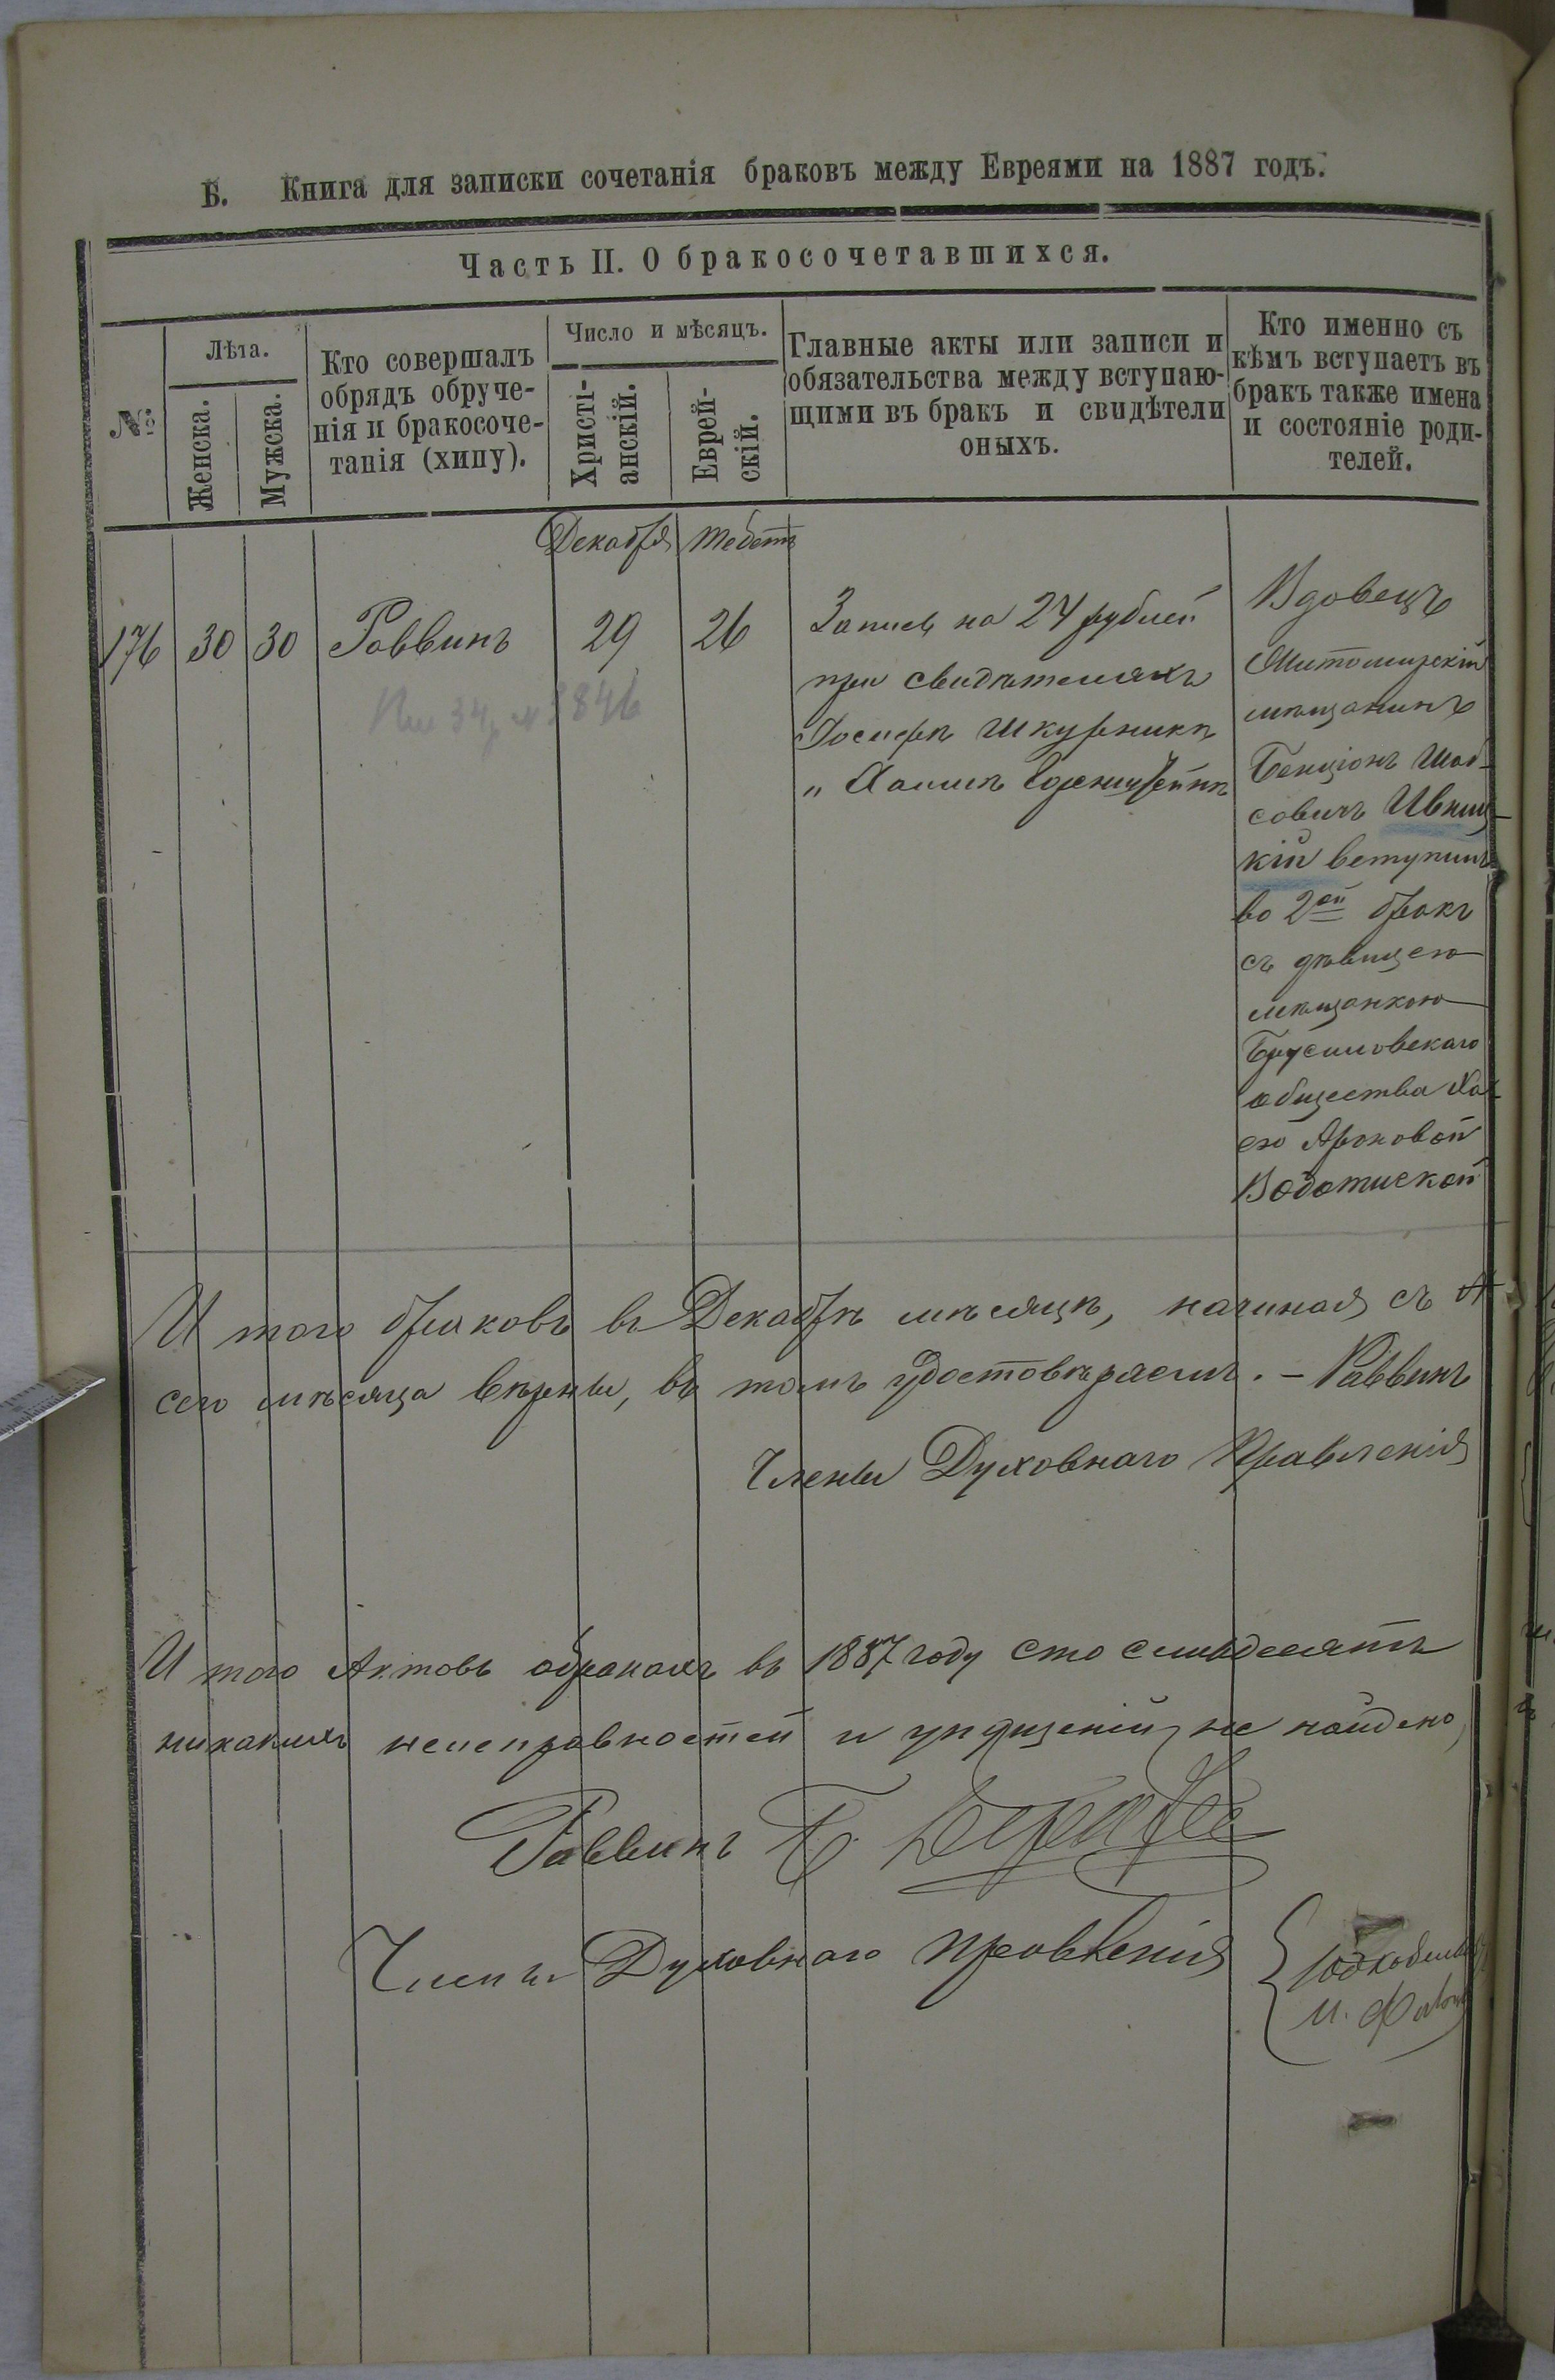 Б. Книга для записки сочетанія браковъ между Евреями на 1887 годъ.
Часть II. О бракосочетавшихся.
№
Лѣта.
Женска.
Мужска.
Кто совершалъ
обрядъ обруче-
нія и бракосоче-
танія (хипу).
Число и мѣсяцъ.
Христі-
анскій.
Еврей-
скій.
Главные акты или записи и
обязательства между вступаю-
щими въ бракъ и свидѣтели
оныхъ.
Кто именно съ
кѣмъ вступаетъ въ
бракъ также имена
и состояніе роди-
телей.
Декабря Тебетъ
176 30 30 Раввинъ 29 26
Запись на 24 рублей
при свидѣтеляхъ
Іосифѣ Шкурникѣ
" Хаимѣ
Вдовецъ
Житомирскій
мѣщанинъ
Бенціонъ Шаб-
совичъ Ивниц-
кій вступилъ
во 2ой бракъ
съ дѣвицею
мѣщанкою
Брусиловскаго
общества Ха-
ею Ароновой
Водотиской
И того браковъ въ Декабрѣ мѣсяцѣ, начиная съ №
сего мѣсяца вѣрны, въ томъ удостовѣряемъ. - Раввинъ
Члены Духовнаго Правленія
И того Актовъ обракахъ въ 1887 году сто семьдесятъ
никакихъ неисправностей и упущеній не найдено,
Раввинъ
Члены Духовнаго Правленія